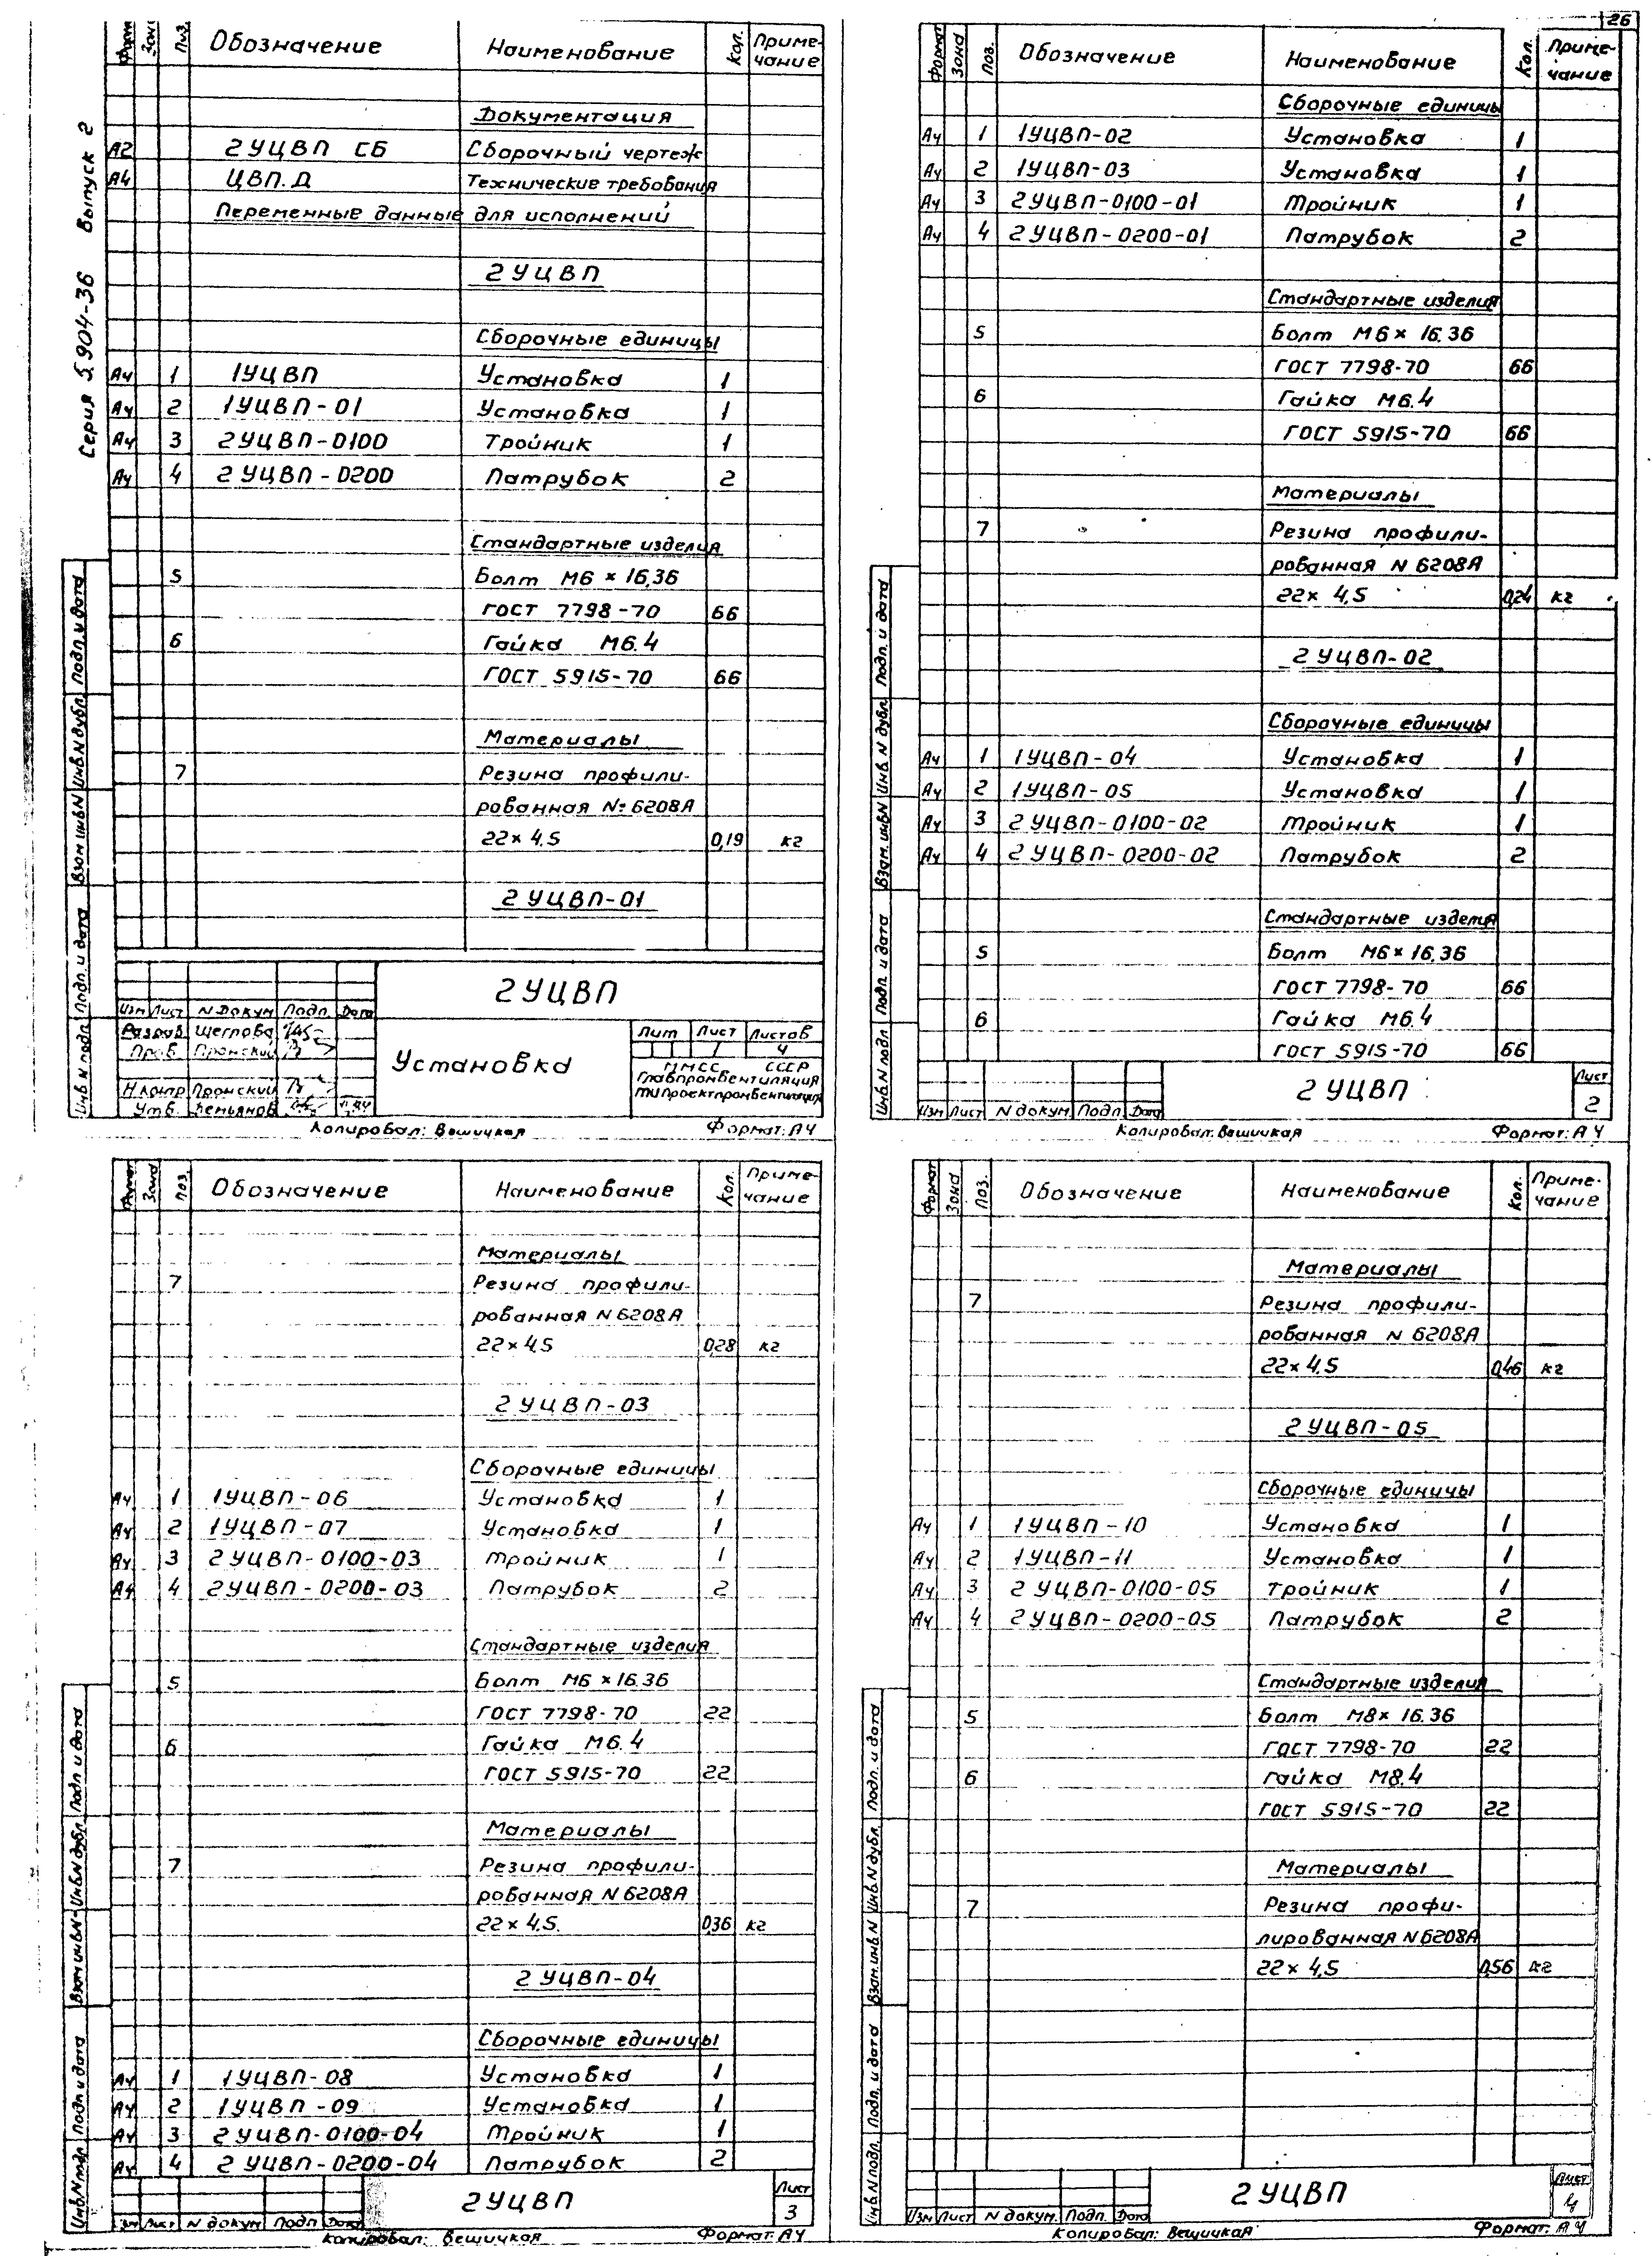 26
Серия 5.904-36 Выпуск 2
Форм. Зона Поз. Обозначение Наименование Кол. Приме-
чание
Документация
А2 2УЦВП СБ Сборочный чертеж
А4 ЦВП.Д Технические требования
Переменные данные для исполнений
2УЦВП
Сборочные единицы
А4 1 1УЦВП Установка 1
А4 2 1УЦВП-01 Установка 1
А4 3 2УЦВП-0100 Тройник 1
А4 4 2УЦВП-0200 Патрубок 2
Стандартные изделия
5 Болт М6 × 16.36
ГОСТ 7798-70 66
6 Гайка М6.4
ГОСТ 5915-70 66
Материалы
7 Резина профили-
рованная № 6208А
22×4.5 0,19 кг
2УЦВП-01
Инв N подл. Подп. и дата Взам инв N Инв N дубл. Подп. и дата
2УЦВП
Изм Лист N Докум Подп. Дата
Разраб. Щеглова
Пров. Пронский
Н контр Пронский
Утв. Демьянов
Установка
Лит Лист Листов
1 4
ММСС СССР
Главпромвентиляция
ГПИ Проектпромвентиляция
Копировал: Вешицкая Формат: А4
Формат Зона Поз. Обозначение Наименование Кол. Приме-
чание
Сборочные единицы
А4 1 1УЦВП-02 Установка 1
А4 2 1УЦВП-03 Установка 1
А4 3 2УЦВП-0100-01 Тройник 1
А4 4 2УЦВП-0200-01 Патрубок 2
Стандартные изделия
5 Болт М6× 16.36
ГОСТ 7798-70 66
6 Гайка М6.4
ГОСТ 5915-70 66
Материалы
7 Резина профили-
рованная N 6208А
22× 4.5 0,24 кг
2УЦВП-02
Сборочные единицы
А4 1 1УЦВП-04 Установка 1
А4 2 1УЦВП-05 Установка 1
А4 3 2УЦВП-0100-02 Тройник 1
А4 4 2УЦВП-0200-02 Патрубок 2
Стандартные изделия
5 Болт М6×16.36
ГОСТ 7798-70 66
6 Гайка М6.4
ГОСТ 5915-70 66
Инв N подл Подп. и дата Взам. инв N Инв N дубл. Подп. и дата
2УЦВП
Лист
2
Изм Лист N докум. Подп. Дата
Копировал: Вешицкая Формат: А4
Формат Зона Поз. Обозначение Наименование Кол. Приме-
чание
Материалы
7 Резина профили-
рованная N 6208А
22× 4.5 0,28 кг
2УЦВП-03
Сборочные единицы
А4 1 1УЦВП-06 Установка 1
А4 2 1УЦВП-07 Установка 1
А4 3 2УЦВП-0100-03 Тройник 1
А4 4 2УЦВП-0200-03 Патрубок 2
Стандартные изделия
5 Болт М6 ×16.36
ГОСТ 7798-70 22
6 Гайка М6.4
ГОСТ 5915-70 22
Материалы
7 Резина профили-
рованная N 6208А
22 × 4.5. 0,36 кг
2УЦВП-04
Сборочные единицы
А4 1 1УЦВП-08 Установка 1
А4 2 1УЦВП-09 Установка 1
А4 3 2УЦВП-0100-04 Тройник 1
А4 4 2УЦВП-0200-04 Патрубок 2
Инв. N подл. Подп. и дата Взам инв. N Инв. N дубл. Подп и дата
2УЦВП
Лист
3
Изм Лист N докум Подп Дата
Копировал: Вешицкая Формат: А4
Формат Зона Поз. Обозначение Наименование Кол. Приме-
чание
Материалы
7 Резина профили-
рованная N 6208А
22× 4.5 0,46 кг
2УЦВП-05
Сборочные единицы
А4 1 1УЦВП-10 Установка 1
А4 2 1УЦВП-11 Установка 1
А4 3 2УЦВП-0100-05 Тройник 1
А4 4 2УЦВП-0200-05 Патрубок 2
Стандартные изделия
5 Болт М8× 16.36
ГОСТ 7798-70 22
6 Гайка М8.4
ГОСТ 5915-70 22
Материалы
7 Резина профи-
лированная N 6208А
22× 4.5 0,56 кг
Инв. N подл. Подп. и дата Взам. инв. N Инв. N дубл. Подп. и дата
2УЦВП
Лист
4
Изм Лист N докум. Подп. Дата
Копировал: Вешицкая Формат: А4